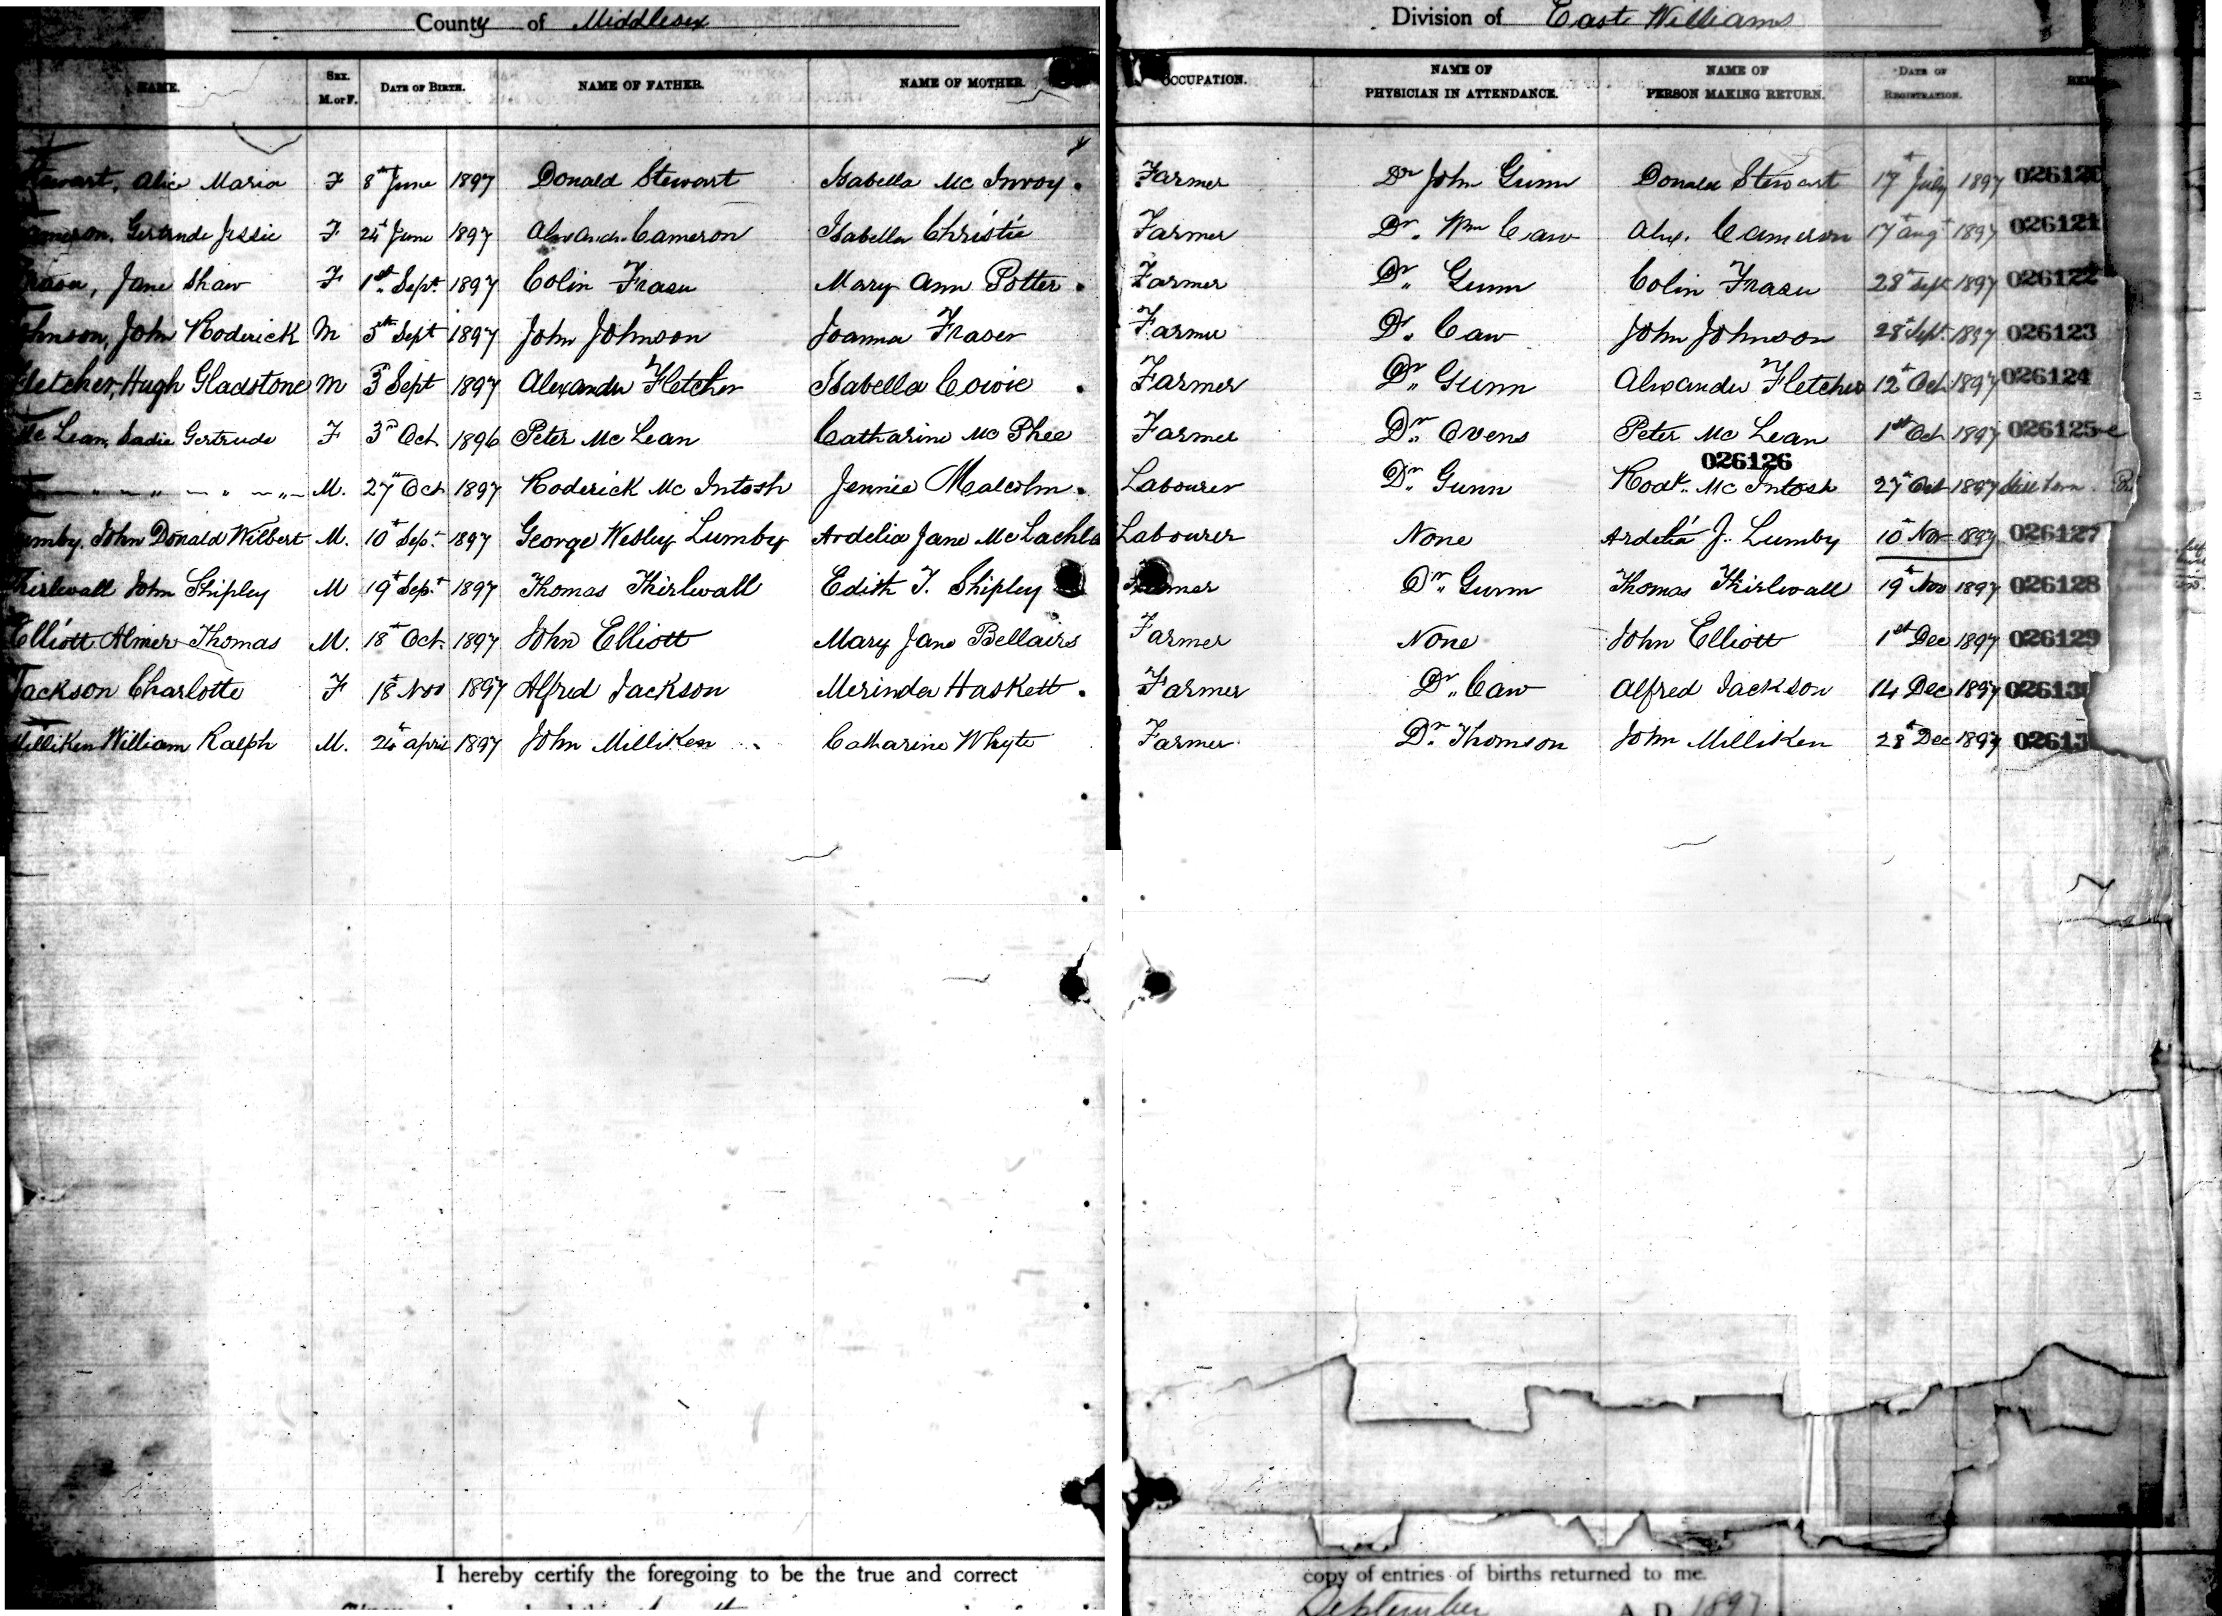 County of Middlesex Division of East Williams
NAME. SEX. M. or F. DATE OF BIRTH. NAME OF FATHER. NAME OF MOTHER. OCCUPATION. NAME OF PHYSICIAN IN ATTENDANCE. NAME OF PERSON MAKING RETURN. DATE OF REGISTRATION. REM
Stewart, Alice Maria F 8th June 1897 Donald Stewart Isabella Mc Invoy. Farmer Dr John Gunn Donald Stewart 17th July 1897 026120
Cameron, Gertrude Jessie F 24th June 1897 Alexandr. Cameron Isabella Christie Farmer Dr. Wm Caw Alex. Cameron 17th Aug 1897 026121
Fraser, Jane Shaw F 1st Sept. 1897 Colin Fraser Mary Ann Potter. Farmer Dr. Gunn Colin Fraser 28th Sept 1897 026122
Johnson, John Roderick M 5th Sept 1897 John Johnson Joanna Fraser Farmer Dr. Caw John Johnson 28th Sept. 1897 026123
Fletcher, Hugh Gladstone M 3rd Sept 1897 Alexander Fletcher Isabella Cowie. Farmer Dr. Gunn Alexander Fletcher 12th Oct 1897 026124
Mc Lean, Sadie Gertrude F 3rd Oct 1896 Peter Mc Lean Catharine Mc Phee Farmer Dr. Ovens Peter Mc Lean 1st Oct 1897 026125
026126
— " — " — " — " — M. 27th Oct 1897 Roderick Mc Intosh Jennie Malcolm. Labourer Dr. Gunn Rodk. Mc Intosh 27th Oct 1897 Still born
Lumby, John Donald Wilbert M. 10th Sept. 1897 George Wesley Lumby Ardelia Jane Mc Lachla Labourer None Ardelia J. Lumby 10th Nov 1897 026127
Thirlwall John Shipley M 19th Sept. 1897 Thomas Thirlwall Edith T. Shipley Farmer Dr. Gunn Thomas Thirlwall 19th Nov 1897 026128
Elliott Almer Thomas M. 18th Oct. 1897 John Elliott Mary Jane Bellairs Farmer None John Elliott 1st Dec 1897 026129
Jackson Charlotte F 18th Nov 1897 Alfred Jackson Merinda Haskett. Farmer Dr. Caw Alfred Jackson 14 Dec 1897 02613
Milliken William Ralph M. 24th April 1897 John Milliken Catharine Whyte Farmer. Dr. Thomson John Milliken 28th Dec 1897 02613
I hereby certify the foregoing to be the true and correct copy of entries of births returned to me.
September A.D. 1897